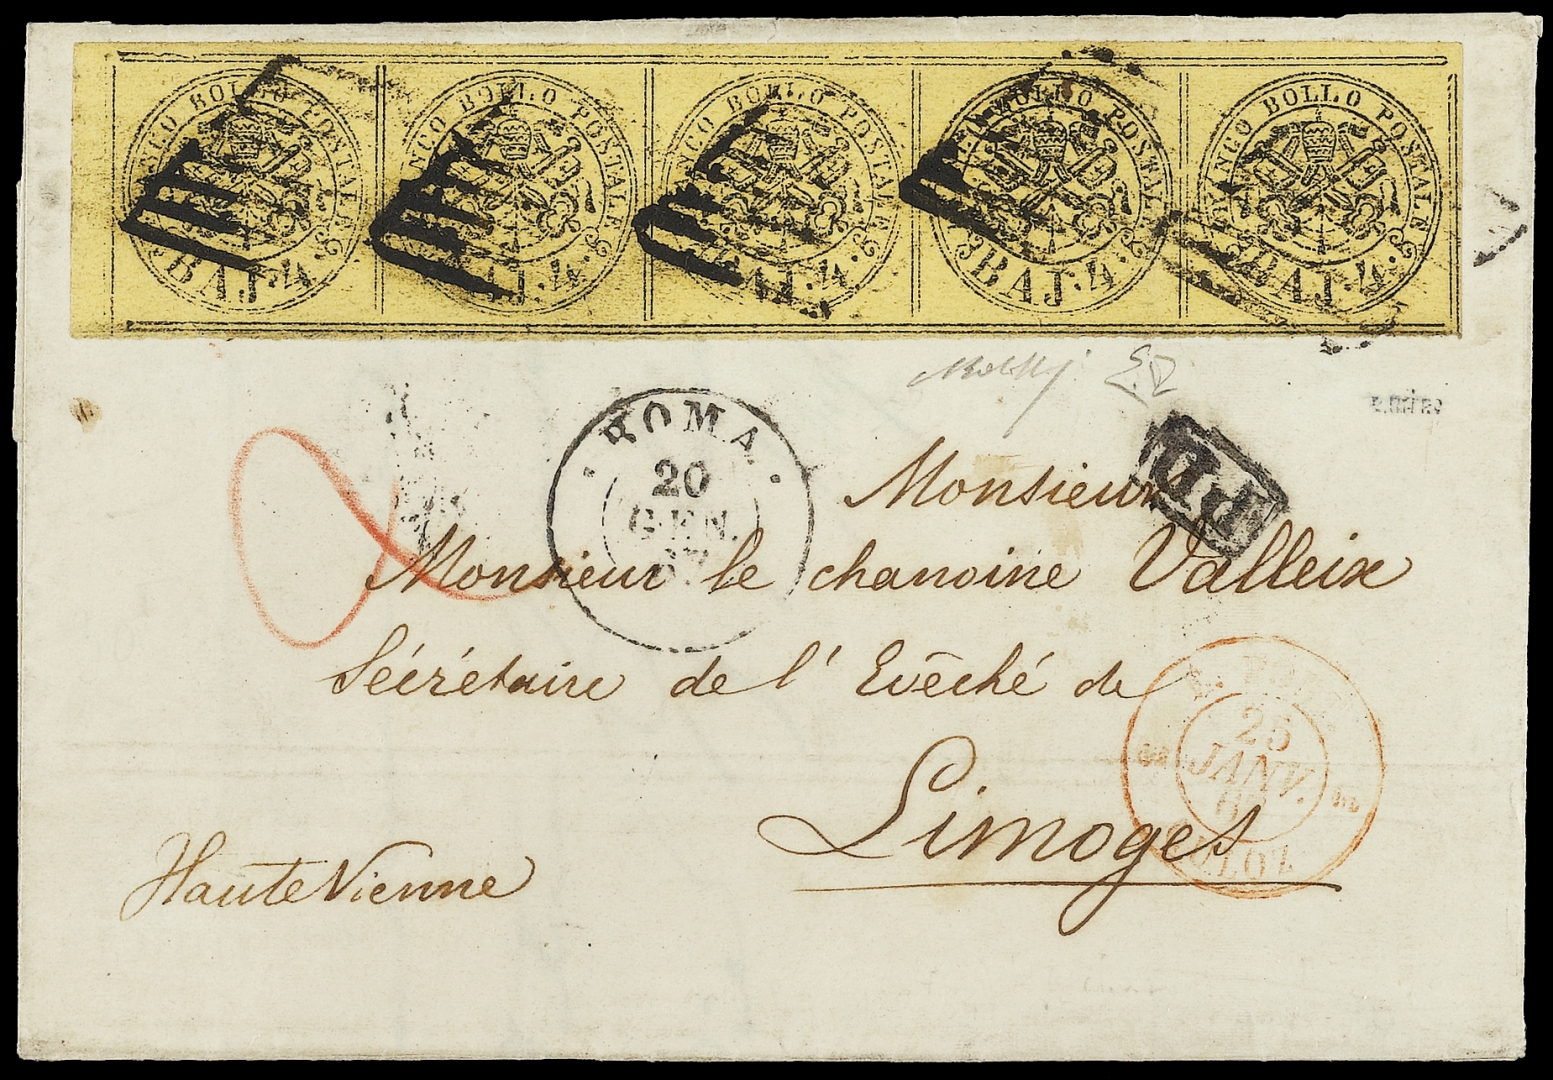 FRANCO BOLLO POSTALE
BAJ. 4.
FRANCO BOLLO POSTALE
BAJ. 4.
FRANCO BOLLO POSTALE
BAJ. 4.
FRANCO BOLLO POSTALE
BAJ. 4.
FRANCO BOLLO POSTALE
BAJ. 4.
ROMA
20
GEN.
67
PD
Monsieur
Monsieur le chanoine Valleix
Sécrétaire de l' Evêché de
Limoges
Haute Vienne
25
JANV.
CULOZ